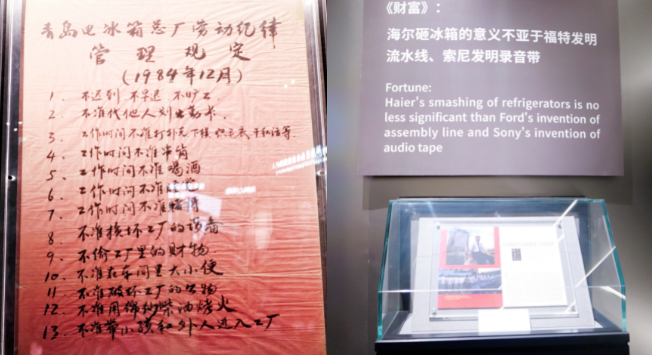 青岛电冰箱总厂劳动纪律
管理规定
(1984年12月)
1. 不迟到 不早退 不旷工
2. 不准代他人划出勤
3. 工作时间不准打扑克下棋 织毛衣 干私活等.
4. 工作时间不准串岗
5. 工作时间不准喝酒
6. 工作时间不准
7. 工作时间不准
8. 不准 工厂的
9. 不偷工厂里的财物
10. 不准在车间里大小便
11. 不准破坏工厂的公物
12. 不准用棉纱柴油烤火
13. 不准带小孩和外人进入工厂
《财富》:
海尔砸冰箱的意义不亚于福特发明
流水线、索尼发明录音带
Fortune:
Haier's smashing of refrigerators is no
less significant than Ford's invention of
assembly line and Sony's invention of
audio tape